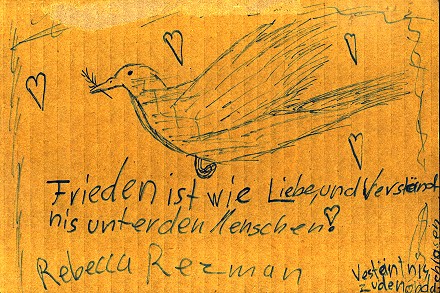 Frieden ist wie Liebe, und Verständ
nis unter den Menschen!
Rebecca Rezman
Vestäntnis
zu den